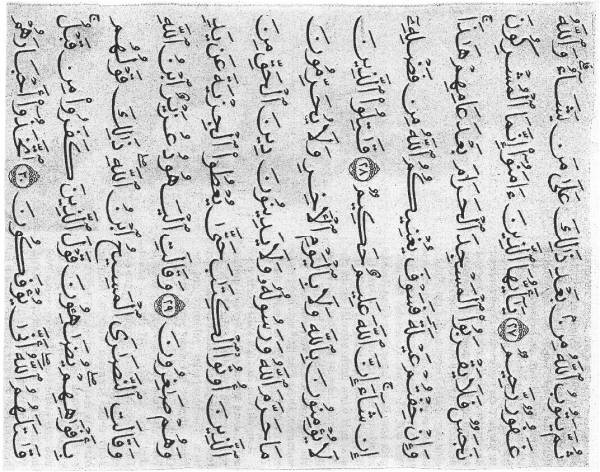 ثُمَّ يَتُوبُ ٱللَّهُ مِنۢ بَعْدِ ذَٰلِكَ عَلَىٰ مَن يَشَآءُ ۗ وَٱللَّهُ
غَفُورٌ رَّحِيمٌ ۝٢٧ يَٰٓأَيُّهَا ٱلَّذِينَ ءَامَنُوٓا۟ إِنَّمَا ٱلْمُشْرِكُونَ
نَجَسٌ فَلَا يَقْرَبُوا۟ ٱلْمَسْجِدَ ٱلْحَرَامَ بَعْدَ عَامِهِمْ هَٰذَا ۚ
وَإِنْ خِفْتُمْ عَيْلَةً فَسَوْفَ يُغْنِيكُمُ ٱللَّهُ مِن فَضْلِهِۦٓ
إِن شَآءَ ۚ إِنَّ ٱللَّهَ عَلِيمٌ حَكِيمٌ ۝٢٨ قَٰتِلُوا۟ ٱلَّذِينَ
لَا يُؤْمِنُونَ بِٱللَّهِ وَلَا بِٱلْيَوْمِ ٱلْءَاخِرِ وَلَا يُحَرِّمُونَ
مَا حَرَّمَ ٱللَّهُ وَرَسُولُهُۥ وَلَا يَدِينُونَ دِينَ ٱلْحَقِّ مِنَ
ٱلَّذِينَ أُوتُوا۟ ٱلْكِتَٰبَ حَتَّىٰ يُعْطُوا۟ ٱلْجِزْيَةَ عَن يَدٍ
وَهُمْ صَٰغِرُونَ ۝٢٩ وَقَالَتِ ٱلْيَهُودُ عُزَيْرٌ ٱبْنُ ٱللَّهِ
وَقَالَتِ ٱلنَّصَٰرَى ٱلْمَسِيحُ ٱبْنُ ٱللَّهِ ۖ ذَٰلِكَ قَوْلُهُم
بِأَفْوَٰهِهِمْ ۖ يُضَٰهِـُٔونَ قَوْلَ ٱلَّذِينَ كَفَرُوا۟ مِن قَبْلُ ۚ
قَٰتَلَهُمُ ٱللَّهُ ۚ أَنَّىٰ يُؤْفَكُونَ ۝٣٠ ٱتَّخَذُوٓا۟ أَحْبَارَهُمْ